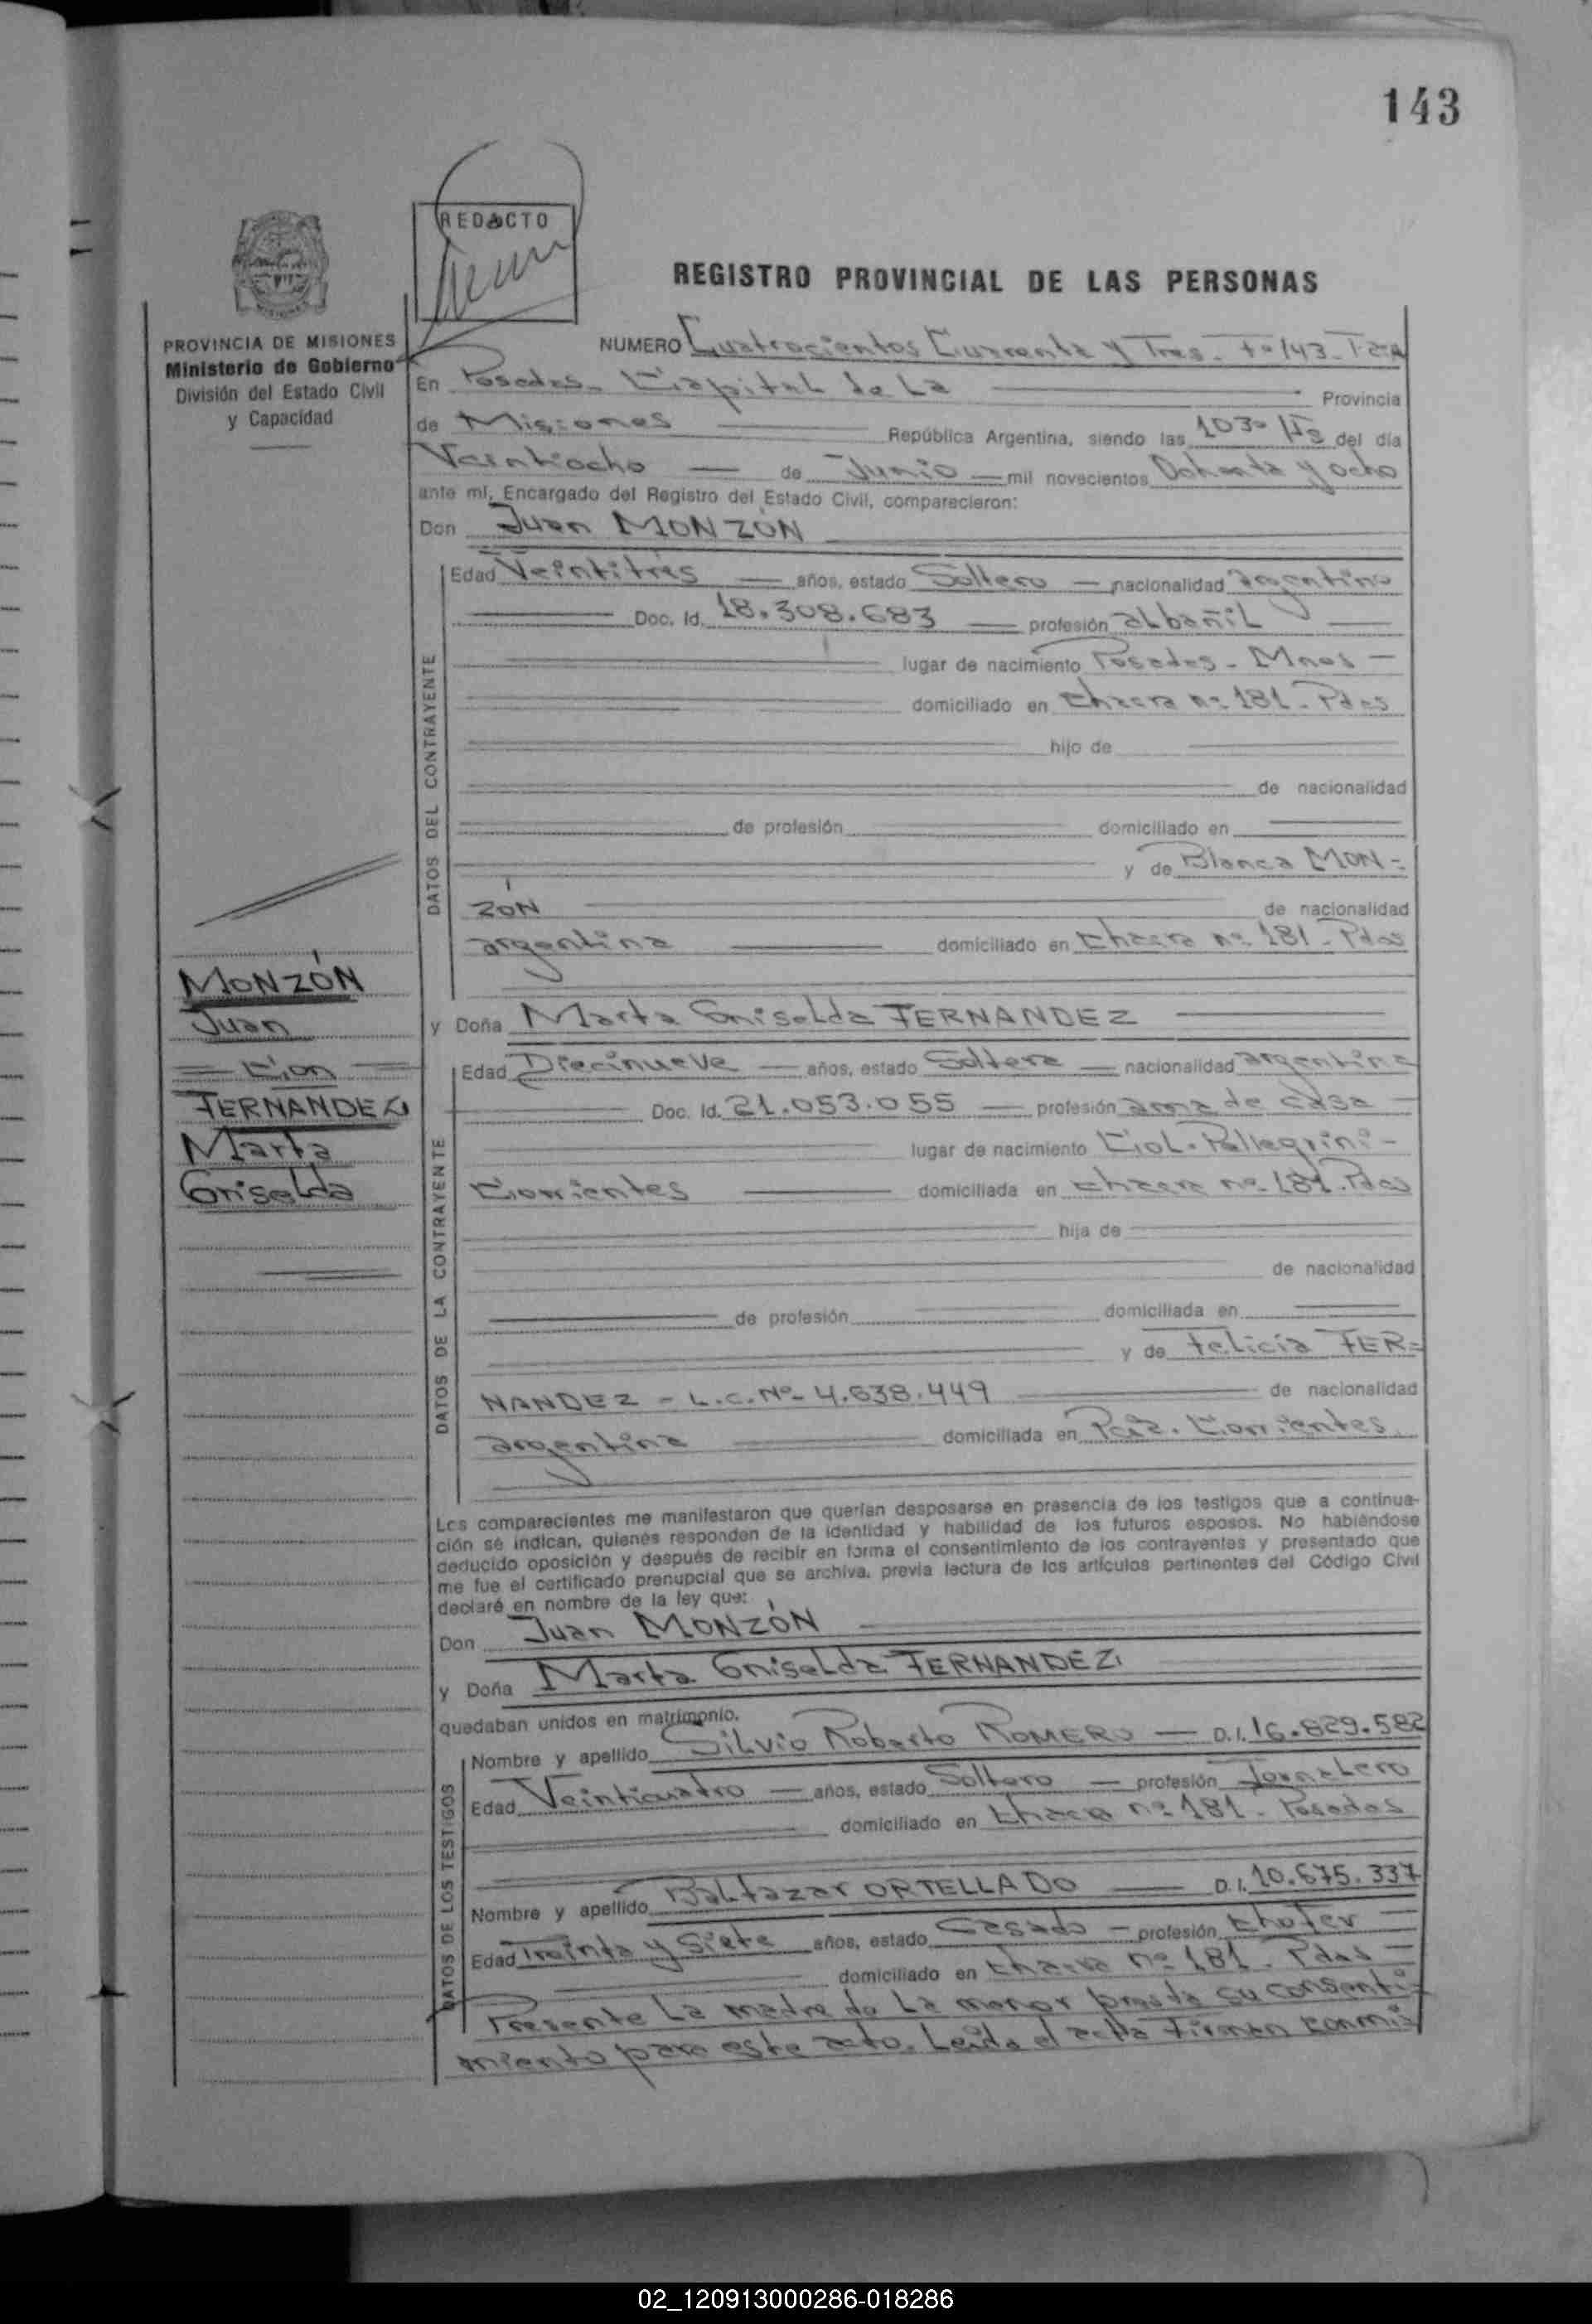 143
REDACTO
REGISTRO PROVINCIAL DE LAS PERSONAS
PROVINCIA DE MISIONES
Ministerio de Gobierno
División del Estado Civil
y Capacidad
NUMERO Cuatrocientos Cuarenta y Tres. Fº 143.
En Posadas. Capital de La Provincia
de Misiones República Argentina, siendo las 1030 Hs del día
Veintiocho de Junio mil novecientos Ochenta y ocho
ante mí, Encargado del Registro del Estado Civil, comparecieron:
Don Juan MONZÓN
DATOS DEL CONTRAYENTE
Edad Veintitrés años, estado Soltero nacionalidad argentino
Doc. Id. 18.308.683 profesión albañil
lugar de nacimiento Posadas - Mnes
domiciliado en Chacra nº 181. Pdas
hijo de
de nacionalidad
de profesión domiciliado en
y de Blanca MON=
ZÓN de nacionalidad
argentina domiciliado en Chacra nº 181. Pdas
MONZÓN
Juan
Con
FERNANDEZ
Marta
Griselda
y Doña Marta Griselda FERNANDEZ
DATOS DE LA CONTRAYENTE
Edad Diecinueve años, estado Soltera nacionalidad argentina
Doc. Id. 21.053.055 profesión ama de casa
lugar de nacimiento Col. Pellegrini -
Corrientes domiciliada en Chacra nº 181. Pdas
hija de
de nacionalidad
de profesión domiciliada en
y de Felicia FER=
NANDEZ - L.C. Nº 4.638.449 de nacionalidad
argentina domiciliada en Corrientes
Los comparecientes me manifestaron que querían desposarse en presencia de los testigos que a continua-
ción se indican, quienes responden de la identidad y habilidad de los futuros esposos. No habiéndose
deducido oposición y después de recibir en forma el consentimiento de los contrayentes y presentado que
me fue el certificado prenupcial que se archiva, previa lectura de los artículos pertinentes del Código Civil
declaré en nombre de la ley que:
Don Juan MONZÓN
y Doña Marta Griselda FERNANDEZ
quedaban unidos en matrimonio.
DATOS DE LOS TESTIGOS
Nombre y apellido Silvio Roberto ROMERO D.I. 16.829.582
Edad Veinticuatro años, estado Soltero profesión Jornalero
domiciliado en Chacra nº 181. Posadas
Nombre y apellido Baltazar ORTELLADO D.I. 10.675.337
Edad Treinta y Siete años, estado Casado profesión Chofer
domiciliado en Chacra nº 181. Pdas
Presente La madre de La menor presta su consenti=
miento para este acto. Leída el acta Firman conmi=
02_120913000286-018286